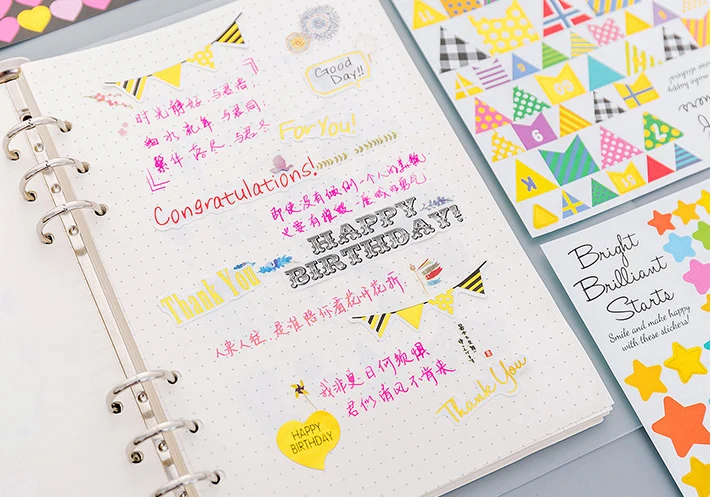 Good
Day!!
时光静好 与君语;
细水流年 与君同;
繁华落尽 与君老
For You!
Congratulations!
即使没有
也要有
HAPPY
BIRTHDAY!
Thank You
人来人往,是谁陪你看花开花折,
我非夏日何须惧
君似清风不肯来
Thank You
HAPPY
BIRTHDAY
Bright
Brilliant
Starts
Smile and make happy
with these stickers!